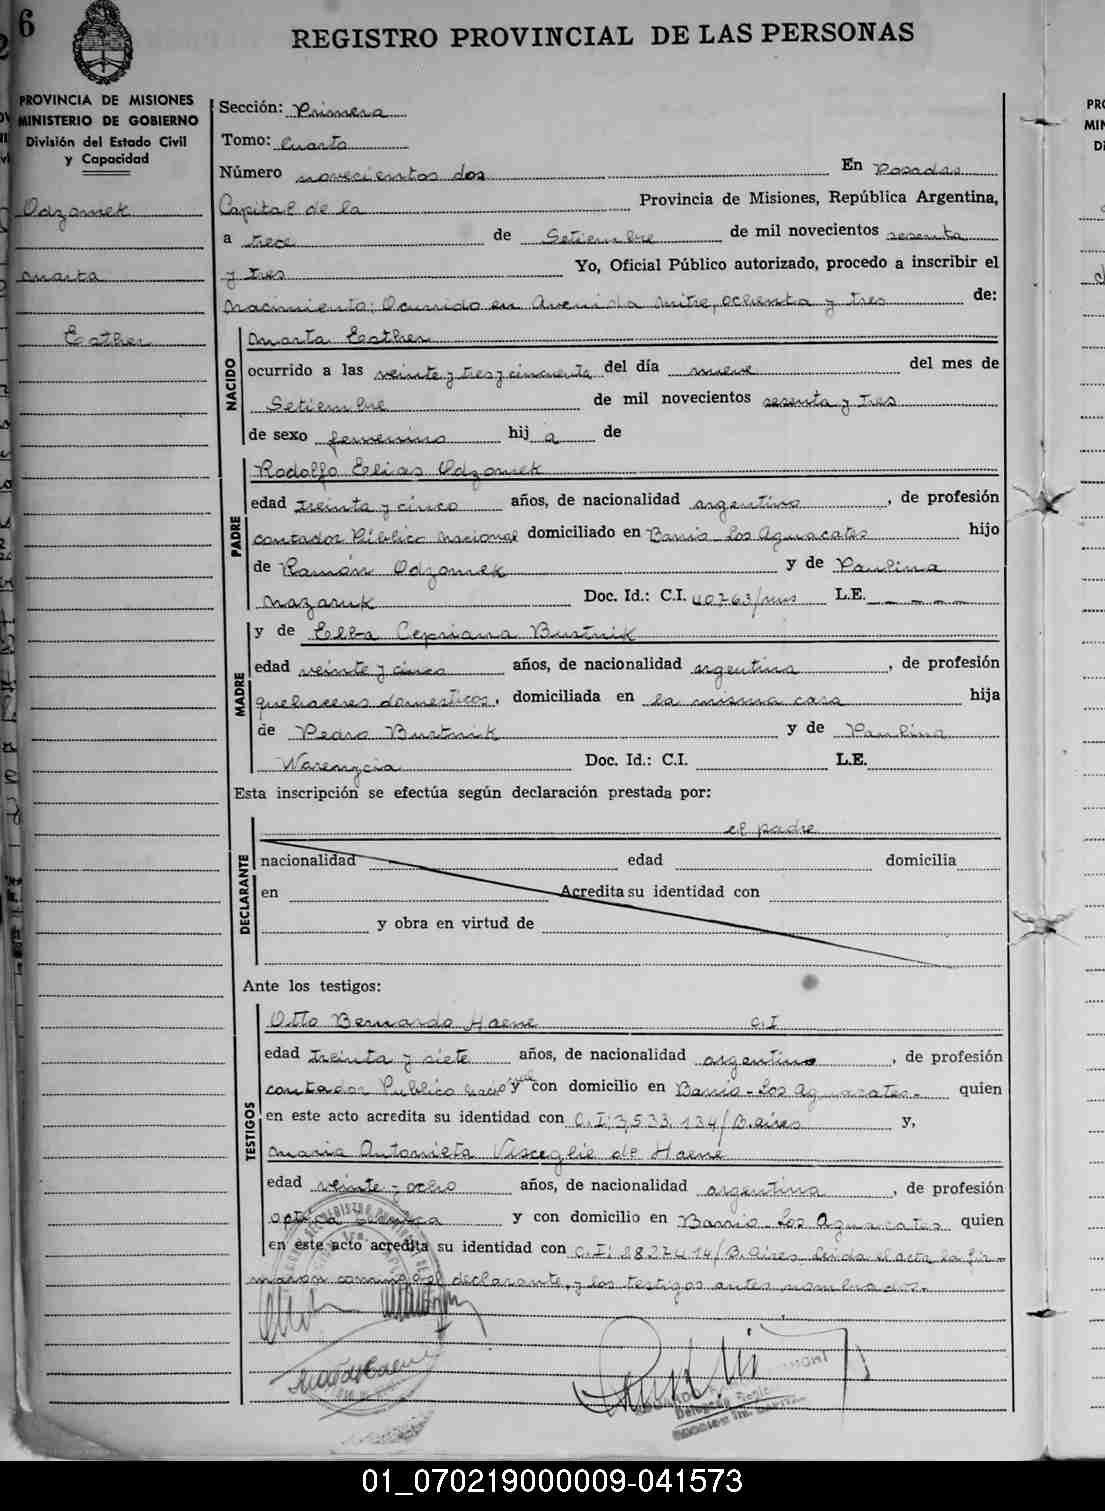 6
REGISTRO PROVINCIAL DE LAS PERSONAS
PROVINCIA DE MISIONES
MINISTERIO DE GOBIERNO
División del Estado Civil
y Capacidad
Odzomek
Marta
Esther
Sección: Primera
Tomo: Cuarto
Número novecientos dos En Posadas
Capital de la Provincia de Misiones, República Argentina,
a trece de Setiembre de mil novecientos sesenta
y tres Yo, Oficial Público autorizado, procedo a inscribir el
Nacimiento; Ocurrido en Avenida Mitre, ochenta y tres de:
NACIDO
Marta Esther
ocurrido a las veinte y tres y cincuenta del día nueve del mes de
Setiembre de mil novecientos sesenta y tres
de sexo femenino hij a de
PADRE
Rodolfo Elias Odzomek
edad treinta y cinco años, de nacionalidad argentino, de profesión
contador Público Nacional domiciliado en Barrio Los Aguacates hijo
de Ramón Odzomek y de Paulina
Mazaruk Doc. Id.: C.I. 40763/mis L.E. _ _ _ _
MADRE
y de Elba Cepriana Burtnik
edad veinte y cinco años, de nacionalidad argentina, de profesión
quehaceres domesticos, domiciliada en la misma casa hija
de Pedro Burtnik y de Paulina
Warenycia Doc. Id.: C.I. L.E.
Esta inscripción se efectúa según declaración prestada por:
DECLARANTE
el padre
nacionalidad edad domicilia
en Acredita su identidad con
y obra en virtud de
Ante los testigos:
TESTIGOS
Otto Bernardo Haene C.I
edad treinta y siete años, de nacionalidad argentino, de profesión
contador Publico y con domicilio en Barrio Los Aguacates quien
en este acto acredita su identidad con C.I: 3,533.134/B.aires y,
Maria Antonieta Visceglie de Haene
edad veinte y ocho años, de nacionalidad argentina, de profesión
optica y con domicilio en Barrio Los Aguacates quien
en este acto acredita su identidad con C.I: /B.aires leida el acta la fir-
maron conmigo el declarante, y los testigos antes nombrados.
01_070219000009-041573